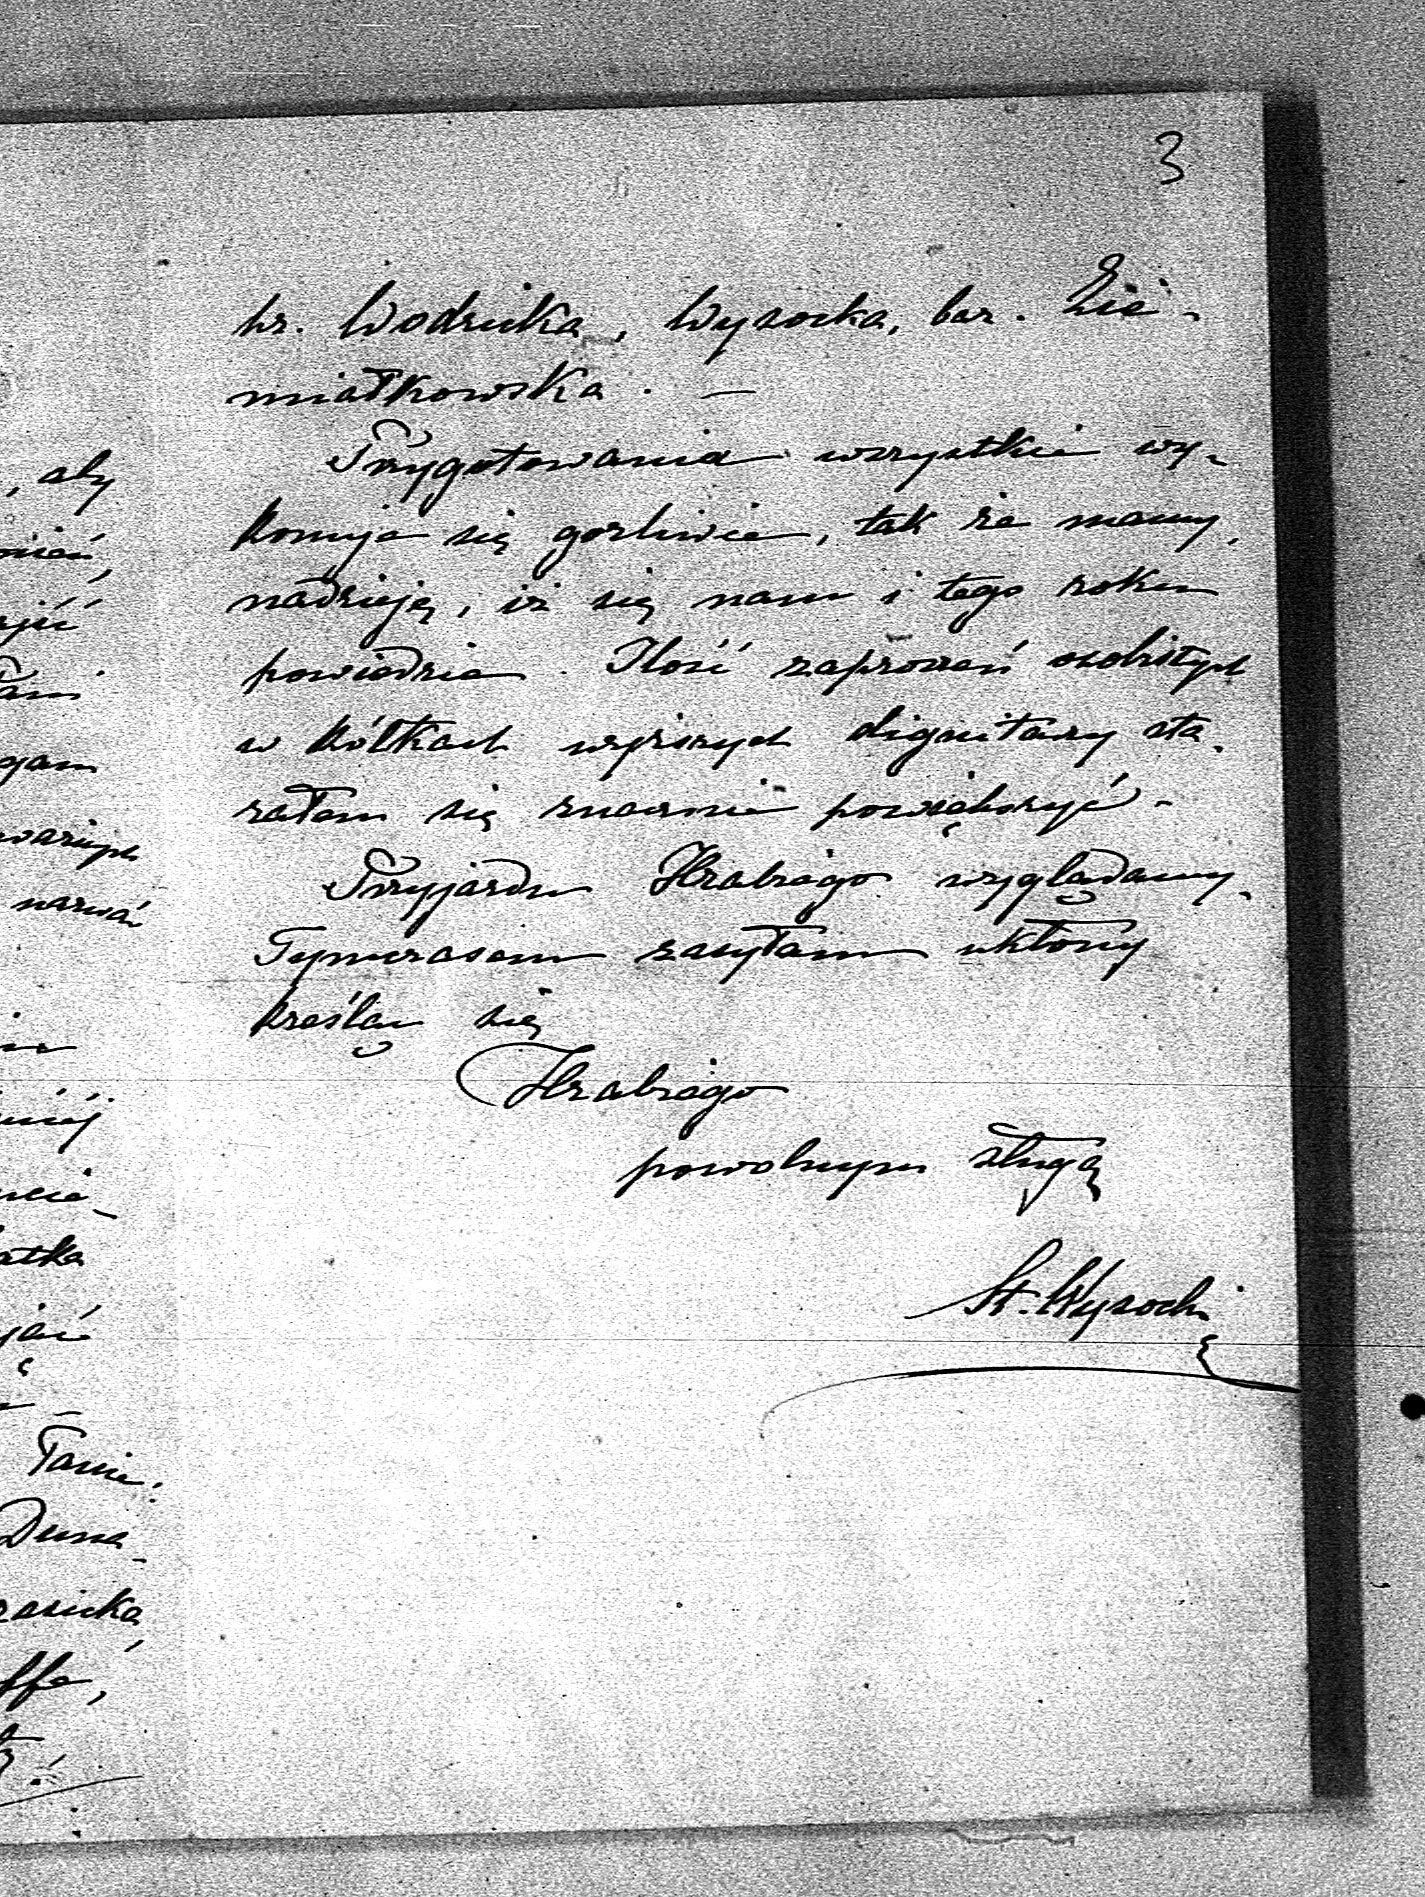 3
hr. Wodzicka, Wysocka, bar. Zie-
miałkowska. —
Przygotowania wszystkie wy-
konuję się gorliwie, tak że mamy
nadzieję, iż się nam i tego roku
powiedzie. Ilość zaproszeń osobistych
w kółkach wyższych dignitarzy sta-
rałem się znacznie powiększyć.
Przyjazdu Hrabiego wyglądamy.
Tymczasem zasyłam ukłony
kreśląc się
Hrabiego
powolnym sługą
St. Wysocki
, aby
Pani
nazwać
Panie:
Duna-